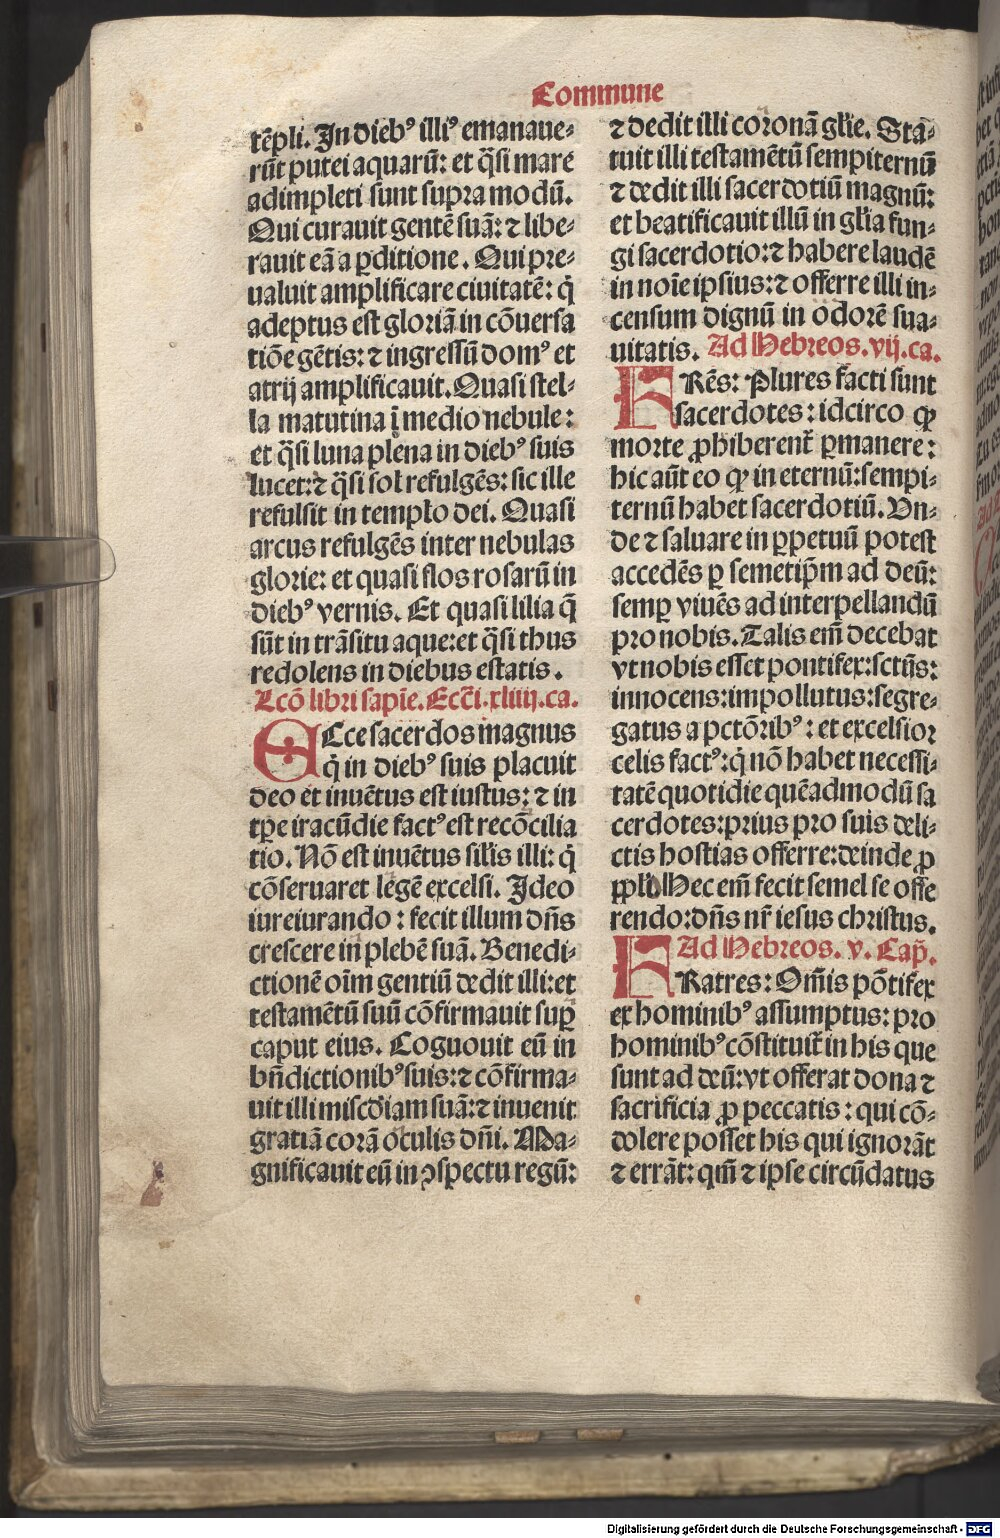 Commune
tēpli. In diebꝰ illiꝰ emanaue⸗
rūt putei aquarū: et q̄si mare
adimpleti sunt supra modū.
Qui curauit gentē suā: ⁊ libe⸗
rauit eā a ꝑditione. Qui pre⸗
ualuit amplificare ciuitatē: q̇
adeptus est gloriā in cōuersa
tiōe gētis: ⁊ ingressū domꝰ et
atrij amplificauit. Quasi stel⸗
la matutina ī medio nebule:
et q̄si luna plena in diebꝰ suis
lucet: ⁊ q̄si sol refulgēs: sic ille
refulsit in templo dei. Quasi
arcus refulgēs inter nebulas
glorie: et quasi flos rosarū in
diebꝰ vernis. Et quasi lilia q̄
sūt in trāsitu aque: et q̄si thus
redolens in diebus estatis.
Lcō libri sapīe. Eccī. xliiij. ca.
ECce sacerdos magnus
q̇ in diebꝰ suis placuit
deo et inuētus est iustus: ⁊ in
tꝑe iracūdie factꝰ est recōcilia
tio. Nō est inuētus sil̄is illi: q̇
cōseruaret legē excelsi. Ideo
iureiurando: fecit illum dn̄s
crescere in plebē suā. Benedi⸗
ctionē oīm gentiū dedit illi: et
testamētū suū cōfirmauit suꝑ
caput eius. Coguouit eū in
bn̄dictionibꝰ suis: ⁊ cōfirma⸗
uit illi miscd̄iam suā: ⁊ inuenit
gratiā corā oculis dn̄i. Ma⸗
gnificauit eū in ↄspectu regū:
⁊ dedit illi coronā gl̄ie. Sta⸗
tuit illi testamētū sempiternū
⁊ dedit illi sacerdotiū magnū:
et beatificauit illū in gl̄ia fun⸗
gi sacerdotio: ⁊ habere laudē
in noīe ipsius: ⁊ offerre illi in⸗
censum dignū in odorē sua⸗
uitatis. Ad Hebreos. vij. ca.
FRēs: Plures facti sunt
sacerdotes: idcirco ꝙ
morte ꝓhiberent̄ ꝑmanere:
hic aūt eo ꝙ in eternū: sempi⸗
ternū habet sacerdotiū. Vn⸗
de ⁊ saluare in ꝑpetuū potest
accedēs ꝑ semetip̄m ad deū:
semꝑ viuēs ad interpellandū
pro nobis. Talis em̄ decebat
vt nobis esset pontifex: sctūs:
innocens: impollutus: segre⸗
gatus a pctōribꝰ: et excelsior
celis factꝰ: q̇ nō habet necessi⸗
tatē quotidie quēadmodū sa
cerdotes: prius pro suis deli⸗
ctis hostias offerre: deinde ꝓ
ppl̄i. Hec em̄ fecit semel se offe
rendo: dn̄s nr̄ iesus christus.
Ad Hebreos. v. Cap̄.
FRatres: Om̄is pōtifex
ex hominibꝰ assumptus: pro
hominibꝰ cōstituit̄ in his que
sunt ad deū: vt offerat dona ⁊
sacrificia ꝓ peccatis: qui cō⸗
dolere posset his qui ignorāt
⁊ errāt: qm̄ ⁊ ipse circūdatus
Digitalisierung gefördert durch die Deutsche Forschungsgemeinschaft - DFG